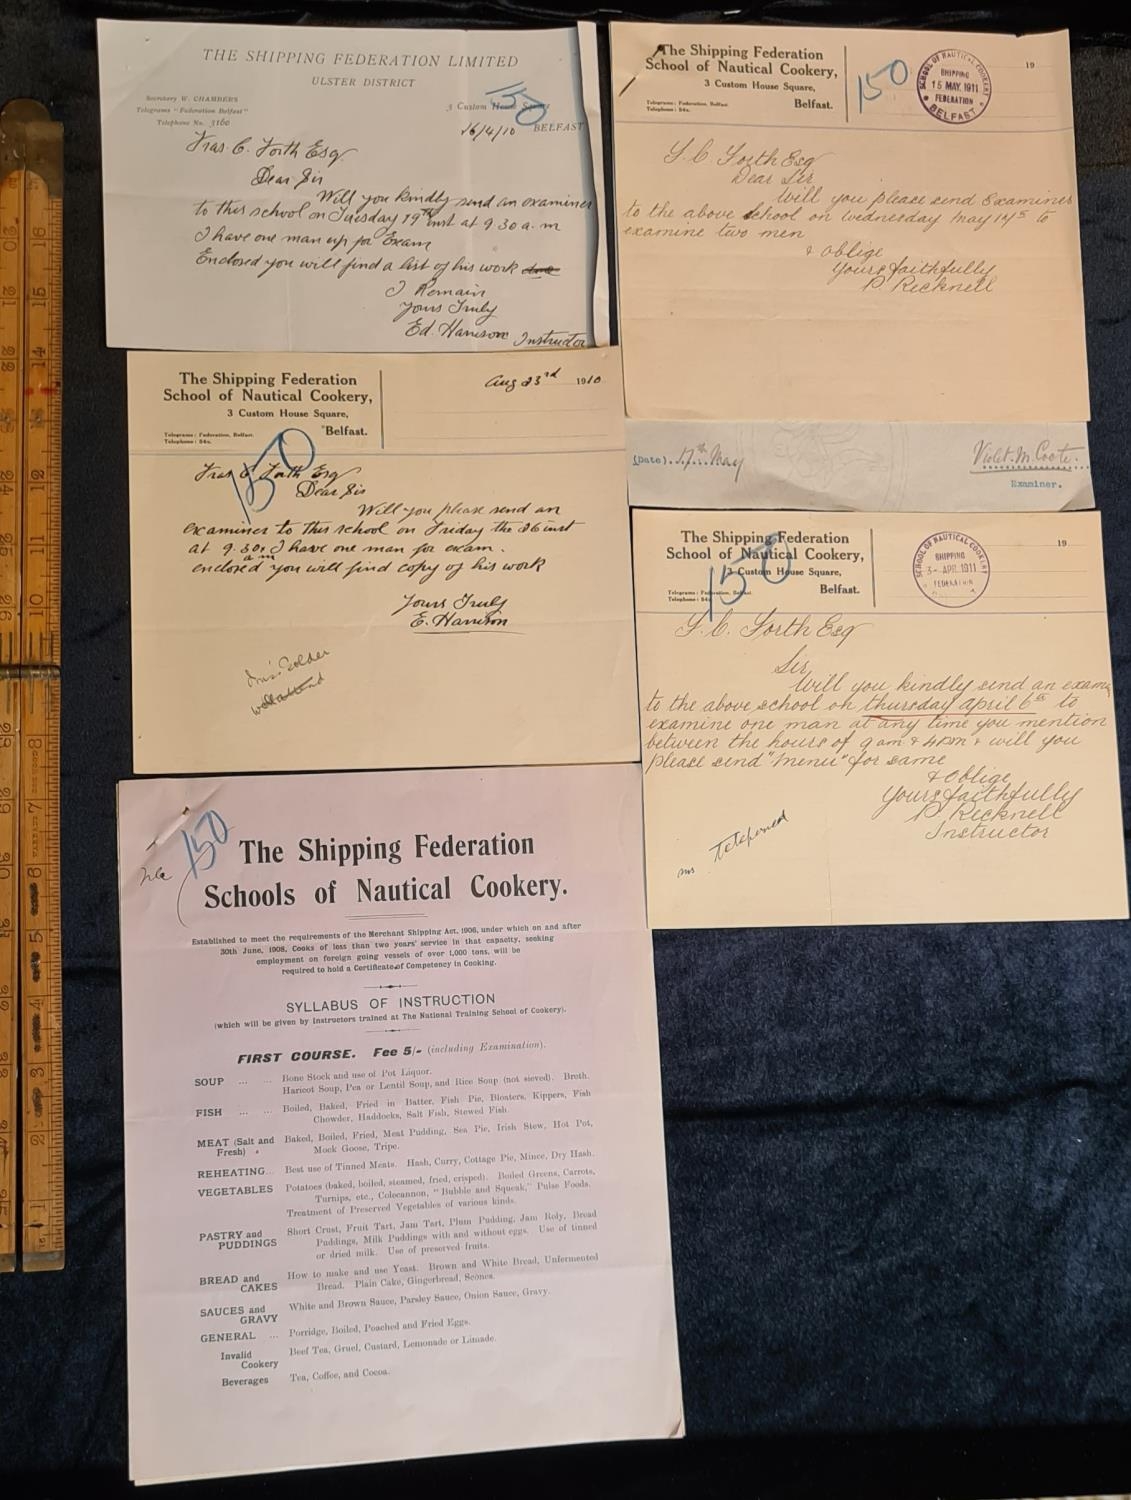 THE SHIPPING FEDERATION LIMITED
ULSTER DISTRICT
Secretary W. CHAMBERS
Telegrams "Federation Belfast"
Telephone No. 3160
3 Custom House Square
150
BELFAST
16/4/10
Fras. C. Forth Esq
Dear Sir
Will you kindly send an examiner
to this school on Tuesday 19th inst at 9.30 a.m
I have one man up for Exam
Enclosed you will find a list of his work
I Remain
Yours Truly
Ed. Harrison Instructor
The Shipping Federation
School of Nautical Cookery,
3 Custom House Square,
Belfast.
Telegrams: Federation, Belfast
150
SCHOOL OF NAUTICAL COOKERY
SHIPPING
15 MAY. 1911
FEDERATION
BELFAST
19
F. C. Forth Esq
Dear Sir
Will you please send Examiner
to the above School on Wednesday May 17th to
examine two men
& Oblige
Yours faithfully
P. Recknell
(Date). 17th May
Violet. M. Coote.
Examiner.
The Shipping Federation
School of Nautical Cookery,
3 Custom House Square,
Belfast.
Telegrams: Federation, Belfast.
150
Aug 23rd 1910
Fras. C. Forth Esq
Dear Sir
Will you please send an
examiner to this school on Friday the 26 inst
at 9.30 am I have one man for exam.
enclosed you will find copy of his work
Yours Truly
E. Harrison
The Shipping Federation
School of Nautical Cookery,
3 Custom House Square,
Belfast.
150
SCHOOL OF NAUTICAL COOKERY
SHIPPING
3 - APR. 1911
FEDERATION
19
F. C. Forth Esq
Sir,
Will you kindly send an exam
to the above school on thursday april 6th to
examine one man at any time you mention
between the hours of 9 am & 4 pm & will you
please send "menu" for same
& Oblige
Yours faithfully
P. Recknell
Instructor
150
The Shipping Federation
Schools of Nautical Cookery.
Established to meet the requirements of the Merchant Shipping Act, 1906, under which on and after
30th June, 1908, Cooks of less than two years' service in that capacity, seeking
employment on foreign going vessels of over 1,000 tons, will be
required to hold a Certificate of Competency in Cooking.
SYLLABUS OF INSTRUCTION
(which will be given by Instructors trained at The National Training School of Cookery).
FIRST COURSE. Fee 5/- (including Examination).
SOUP ... ... Bone Stock and use of Pot Liquor.
Haricot Soup, Pea or Lentil Soup, and Rice Soup (not sieved). Broth.
FISH ... ... Boiled, Baked, Fried in Batter, Fish Pie, Bloaters, Kippers, Fish
Chowder, Haddocks, Salt Fish, Stewed Fish.
MEAT (Salt and Fresh) Baked, Boiled, Fried, Meat Pudding, Sea Pie, Irish Stew, Hot Pot,
Mock Goose, Tripe.
REHEATING... Best use of Tinned Meats. Hash, Curry, Cottage Pie, Mince, Dry Hash.
VEGETABLES Potatoes (baked, boiled, steamed, fried, crisped). Boiled Greens, Carrots,
Turnips, etc., Colecannon, "Bubble and Squeak," Pulse Foods.
Treatment of Preserved Vegetables of various kinds.
PASTRY and PUDDINGS Short Crust, Fruit Tart, Jam Tart, Plum Pudding, Jam Roly, Bread
Puddings, Milk Puddings with and without eggs. Use of tinned
or dried milk. Use of preserved fruits.
BREAD and CAKES How to make and use Yeast. Brown and White Bread, Unfermented
Bread. Plain Cake, Gingerbread, Scones.
SAUCES and GRAVY White and Brown Sauce, Parsley Sauce, Onion Sauce, Gravy.
GENERAL ... Porridge, Boiled, Poached and Fried Eggs.
Invalid Cookery Beef Tea, Gruel, Custard, Lemonade or Limade.
Beverages Tea, Coffee, and Cocoa.